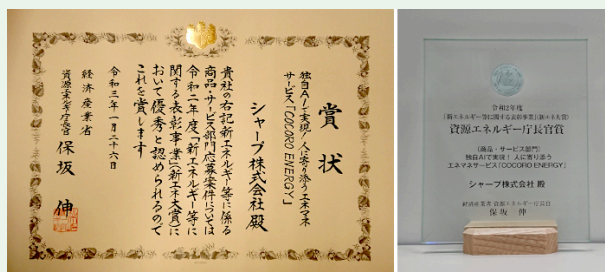 賞状
独自AIで実現!人に寄り添うエネマネ
サービス「COCORO ENERGY」
シャープ株式会社 殿
貴社の右記新エネルギー等に係る
商品・サービス部門応募案件については
令和二年度「新エネルギー等に
関する表彰事業」(新エネ大賞)に
おいて優秀と認められるので
これを賞します
令和三年一月二十六日
経済産業省
資源エネルギー庁長官 保坂 伸
令和2年度
「新エネルギー等に関する表彰事業」(新エネ大賞)
資源エネルギー庁長官賞
(商品・サービス部門)
独自AIで実現! 人に寄り添う
エネマネサービス「COCORO ENERGY」
シャープ株式会社 殿
経済産業省 資源エネルギー庁長官
保坂 伸